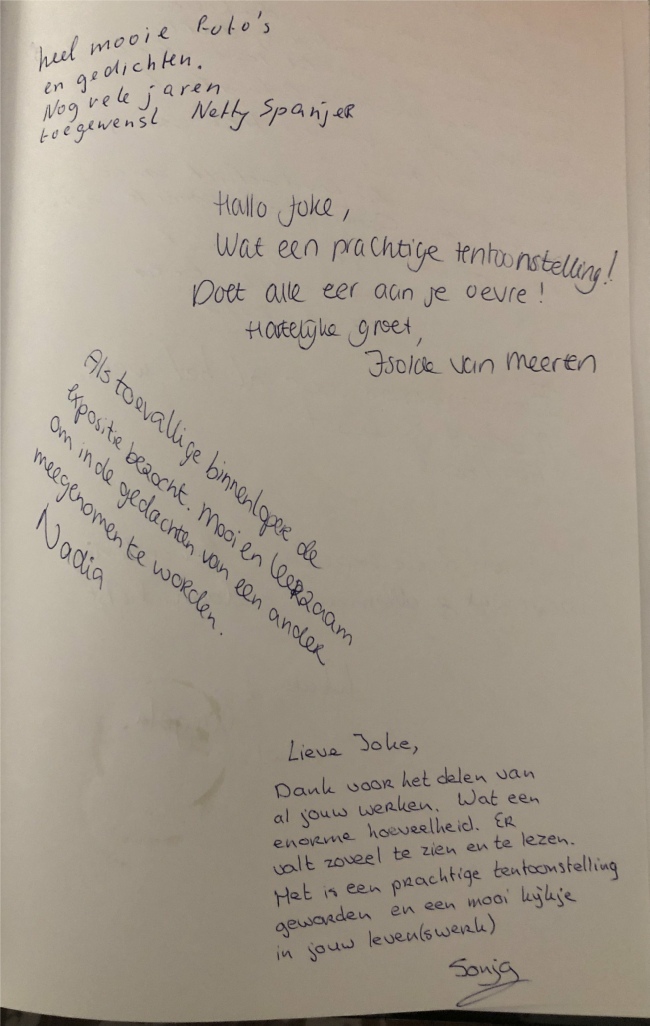 heel mooie Foto's
en gedichten.
Nog vele jaren
toegewenst Netty Spanjer
Hallo Joke,
Wat een prachtige tentoonstelling!
Doet alle eer aan je oevre!
Hartelijke groet,
Isolde van Meeren
Als toevallige binnenloper de
expositie bezocht. Mooi en leerzaam
om in de gedachten van een ander
meegenomen te worden.
Nadia
Lieve Joke,
Dank voor het delen van
al jouw werken. Wat een
enorme hoeveelheid. Er
valt zoveel te zien en te lezen.
Het is een prachtige tentoonstelling
geworden en een mooi kijkje
in jouw leven(swerk)
Sonja